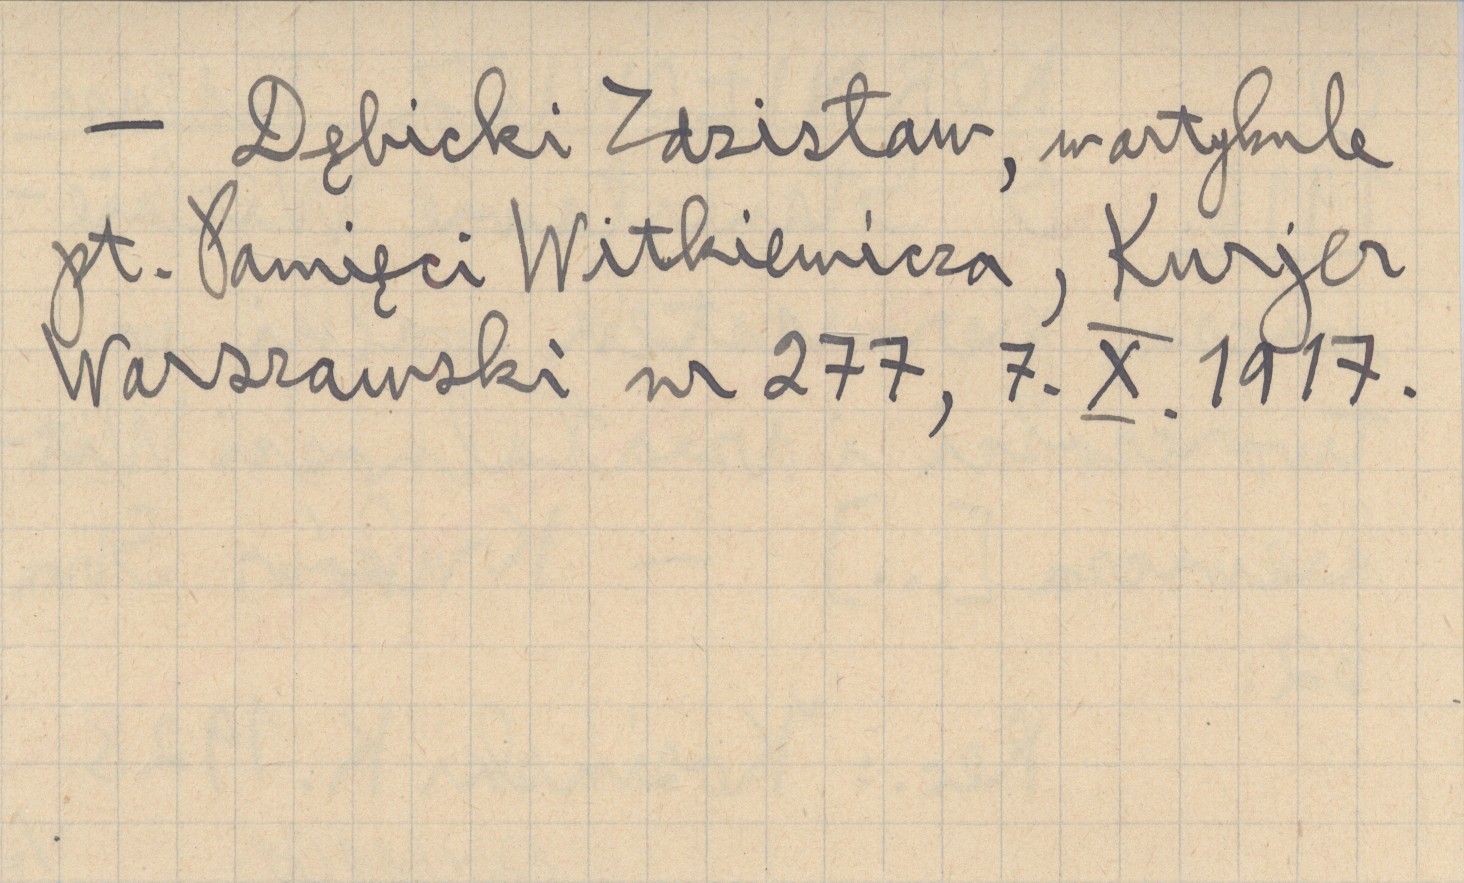 — Dębicki Zdzisław, w artykule
pt. Pamięci Witkiewicza, Kurjer
Warszawski nr 277, 7. X. 1917.